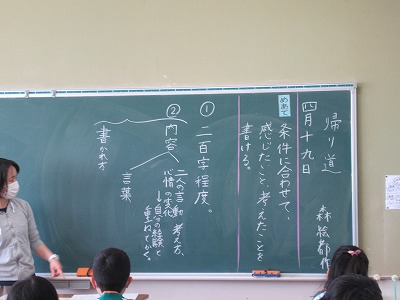 帰り道
森絵都作
四月十九日
めあて
条件に合わせて、
感じたこと、考えたことを
書ける。
① 二百字程度。
② 内容
二人の言動 考え方、
心情の変化
→自分の経験と
重ねてかく。
言葉
書かれ方